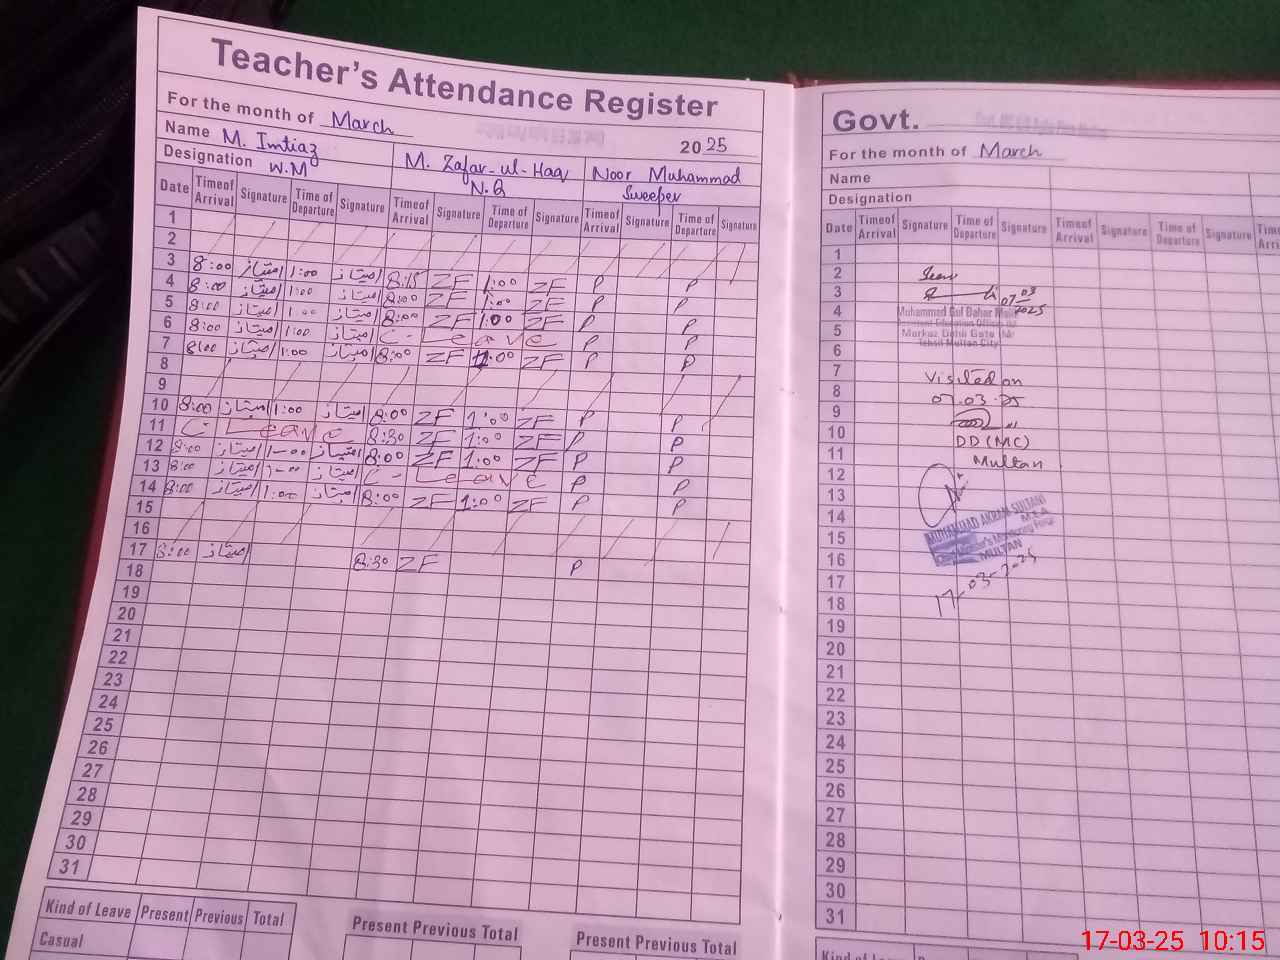 Teacher's Attendance Register
For the month of March 2025
Name M. Imtiaz M. Zafar-ul-Haq Noor Muhammad
Designation W.M N.Q Sweeper
Date Timeof Arrival Signature Time of Departure Signature Timeof Arrival Signature Time of Departure Signature Timeof Arrival Signature Time of Departure Signature
1
2
3 8:00 امیتاز 1:00 امیتاز 8:15 ZF 1:00 ZF P P
4 8:00 امیتاز 1:00 امیتاز 8:00 ZF 1:00 ZF P P
5 8:00 امیتاز 1:00 امیتاز 8:00 ZF 1:00 ZF P P
6 8:00 امیتاز 1:00 امیتاز C- Leave P P
7 8:00 امیتاز 1:00 امیتاز 8:00 ZF 1:00 ZF P P
8
9
10 8:00 امیتاز 1:00 امیتاز 8:00 ZF 1:00 ZF P P
11 C- Leave 8:30 ZF 1:00 ZF P P
12 8:00 امیتاز 1-00 امیتاز 8:00 ZF 1:00 ZF P P
13 8:00 امیتاز 1-00 امیتاز C- Leave P P
14 8:00 امیتاز 1:00 امیتاز 8:00 ZF 1:00 ZF P P
15
16
17 8:00 امیتاز 8:30 ZF P
18
19
20
21
22
23
24
25
26
27
28
29
30
31
Kind of Leave Present Previous Total Present Previous Total Present Previous Total
Casual
Govt.
For the month of March
Name
Designation
Date Timeof Arrival Signature Time of Departure Signature Timeof Arrival Signature Time of Departure Signature Timeof Arrival
1
2 Seen
3 07-03
4 Muhammad Gul Bahar 2025
5 Assistant Education Officer
Markaz Delhi Gate
6 Tehsil Multan City
7 Visited on
8 07.03.25
9
10 DD (MC)
11 Multan
12
13
14 MUHAMMAD AKRAM SULTANI
15 M.E.A
Chief Minister's Monitoring Force
16 MULTAN
17 17-03-2-25
18
19
20
21
22
23
24
25
26
27
28
29
30
31
Kind of Leave
17-03-25 10:15